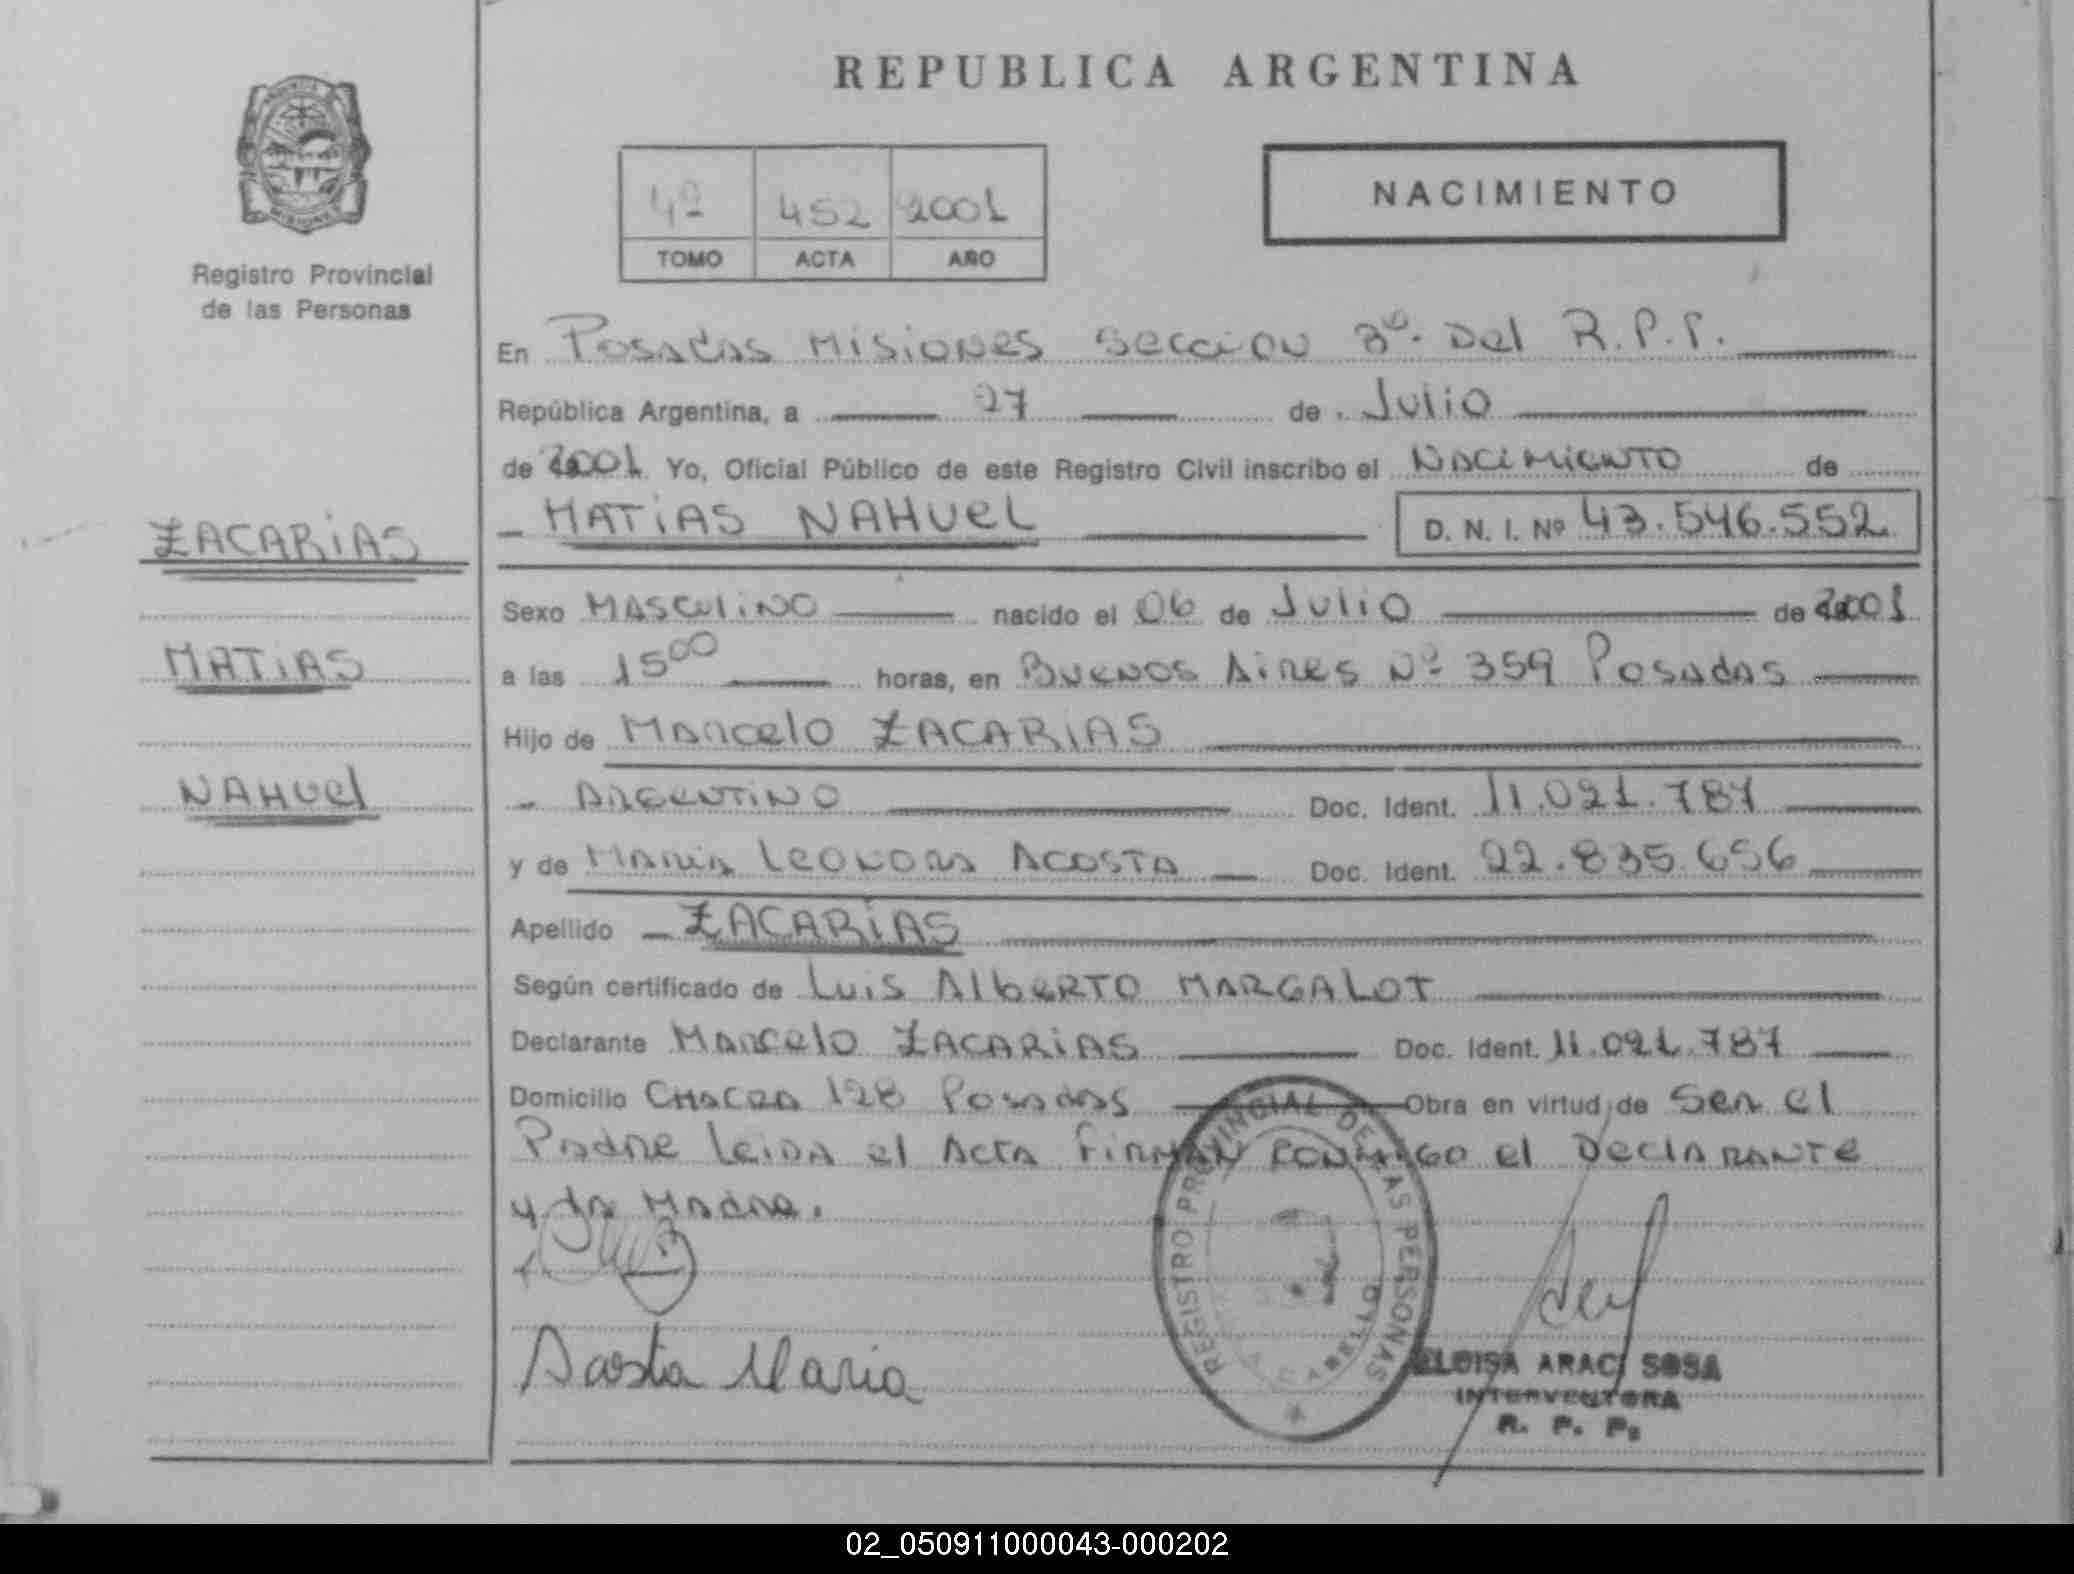 REPUBLICA ARGENTINA
4º 452 2001
TOMO ACTA AÑO
NACIMIENTO
Registro Provincial
de las Personas
ZACARIAS
MATIAS
NAHUEL
En Posadas Misiones Seccion 3º. Del R.P.P.
República Argentina, a 27 de Julio
de 2001 Yo, Oficial Público de este Registro Civil inscribo el Nacimiento de
MATIAS NAHUEL D. N. I. Nº 43.546.552
Sexo MASCULINO nacido el 06 de Julio de 2001
a las 15 00 horas, en Buenos Aires Nº 359 Posadas
Hijo de Marcelo ZACARIAS
ARGENTINO Doc. Ident. 11.021.787
y de Maria Leonora ACOSTA Doc. Ident. 22.835.656
Apellido ZACARIAS
Según certificado de Luis Alberto MARGALOT
Declarante Marcelo ZACARIAS Doc. Ident. 11.021.787
Domicilio Chacra 128 Posadas Obra en virtud de Ser el
Padre Leida el Acta Firman conmigo el Declarante
y la Madre.
Acosta Maria
REGISTRO PROVINCIAL DE LAS PERSONAS
ELOISA ARACI SOSA
INTERVENTORA
R. P. P.
02_050911000043-000202